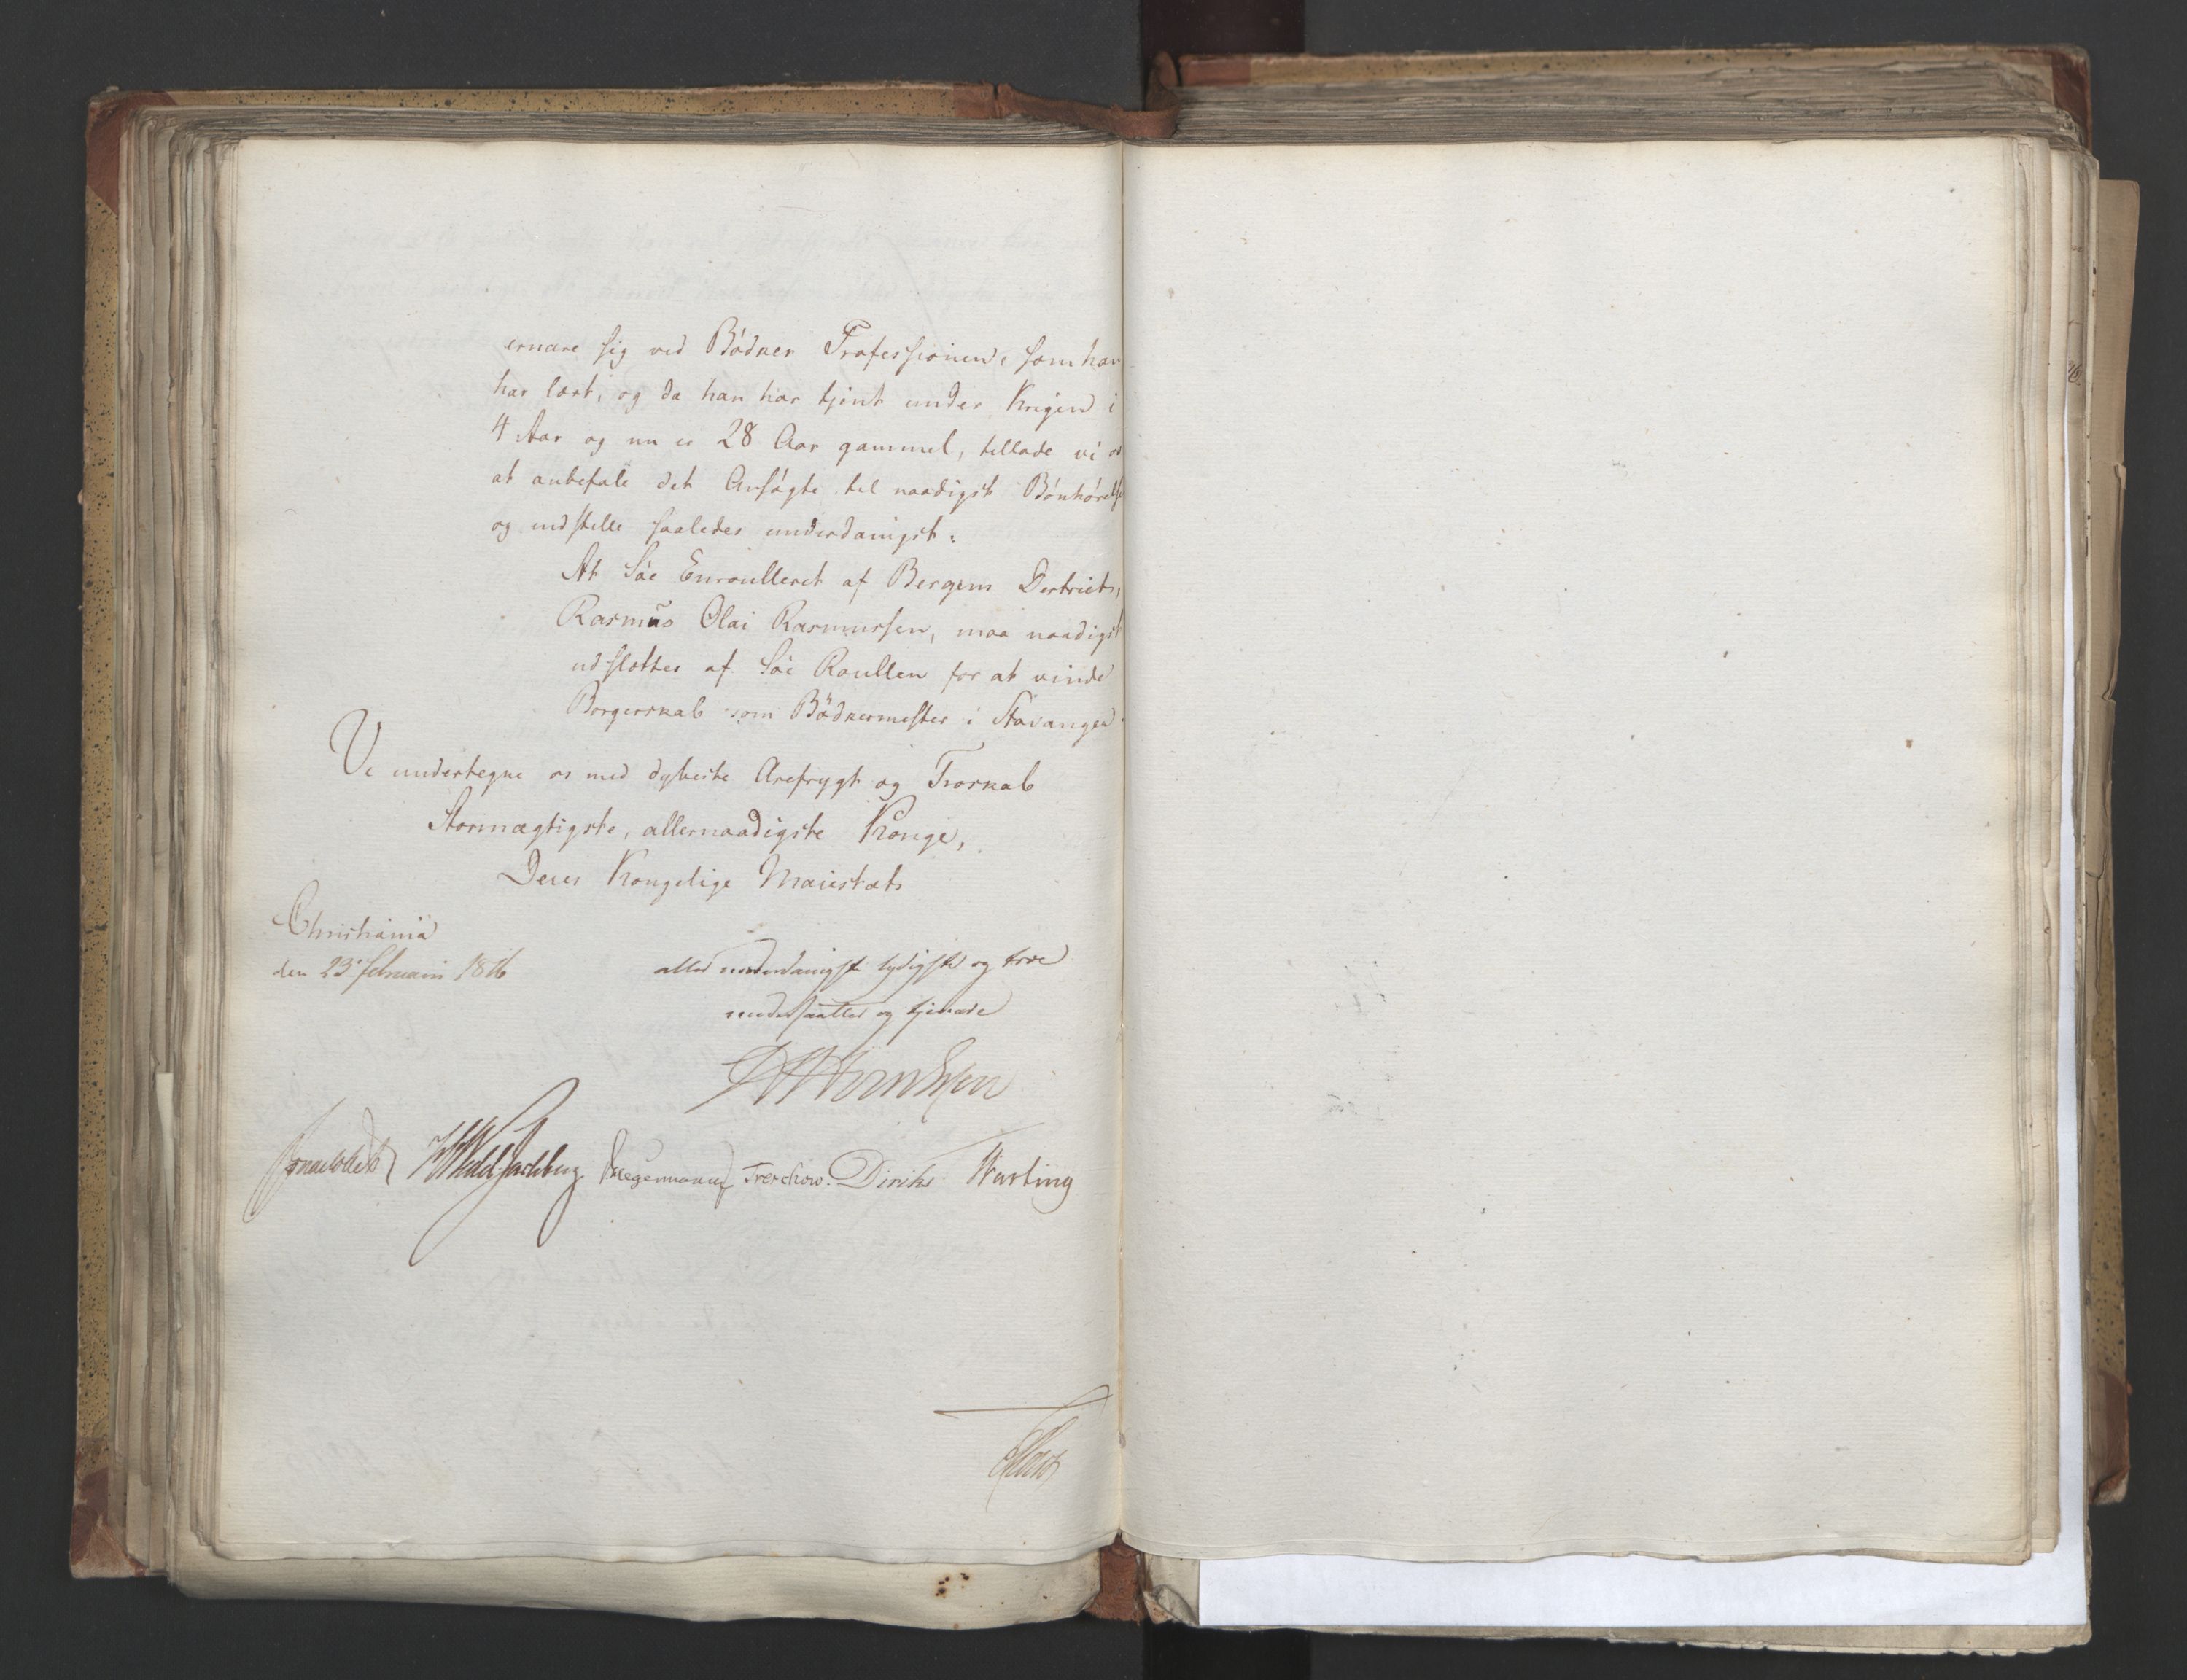 ernære sig ved Bødker Professionen, som han
har lært, og da han har tjent under Krigen i
4 Aar og nu er 28 Aar gammel, tillade vi os
at anbefale det Ansøgte til naadigst Bønhørelse
og indstille saaledes underdanigst:
At Søe Enroulleret af Bergens District,
Rasmus Olai Rasmussen, maa naadigst
udslettes af Søe Roullen for at vinde
Borgerskab som Bødkermester i Stavanger.
Vi undertegne os med dybeste Ærefrygt og Troskab
Stormægtigste, allernaadigste Konge,
Deres Kongelige Maiestæts
Christiania
den 23 februarii 1816
aller underdanigst lydigste og troe
undersaatter og tjenere
Sommerhielm Wedel Jarlsberg Hegermann Treschow. Diriks Motzfeldt